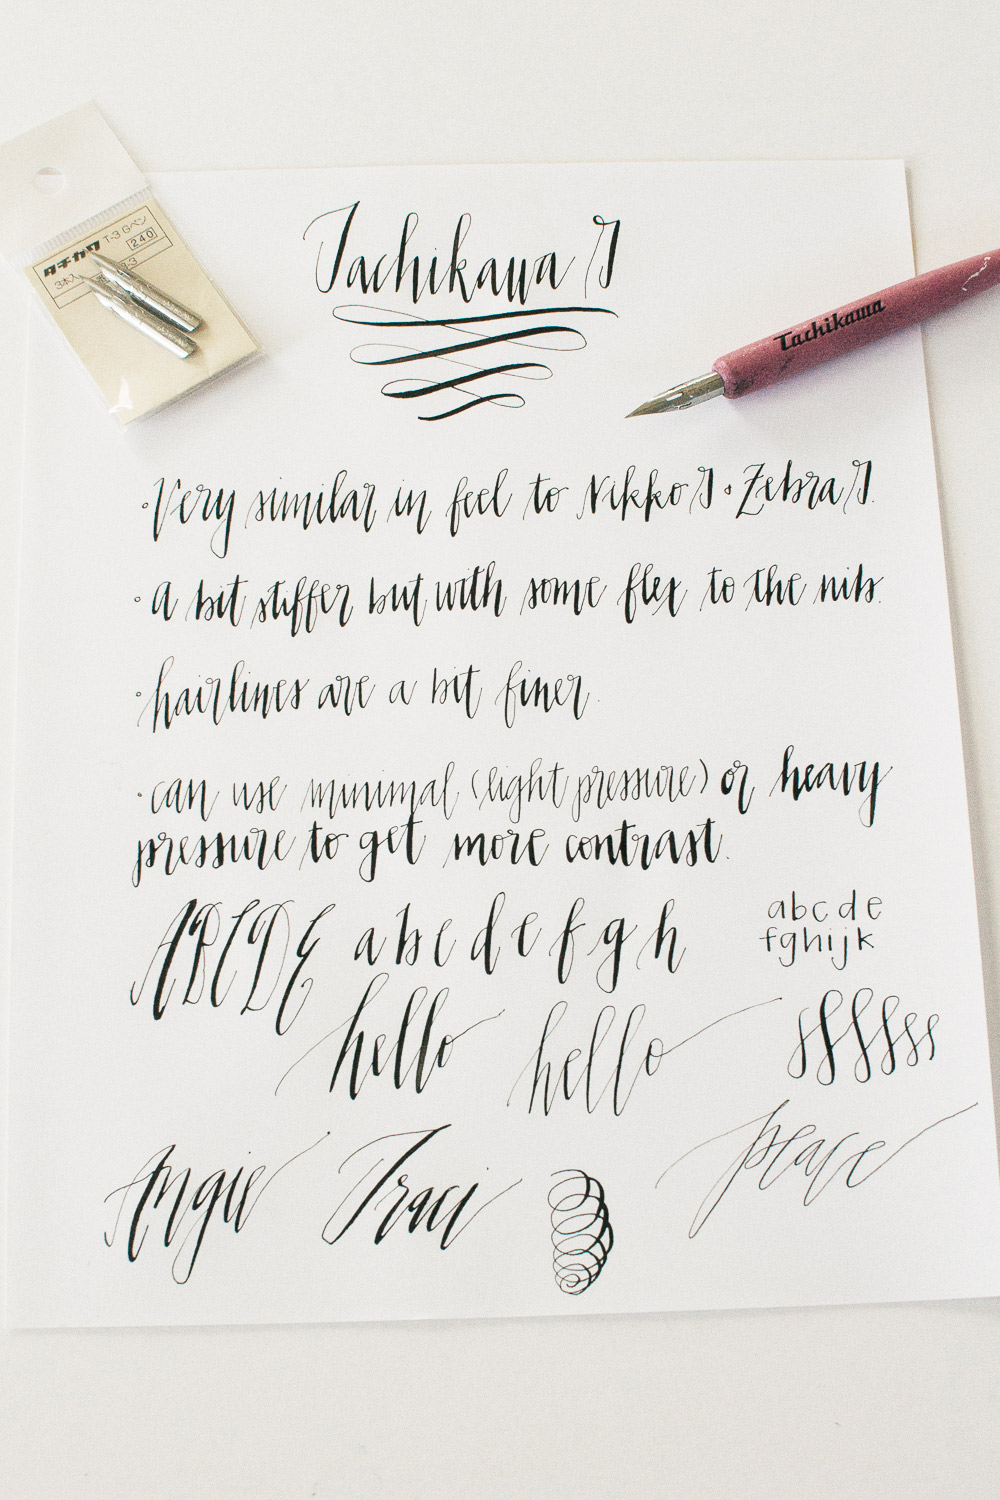 Tachikawa G
タチカワ T-3 Gペン
240
3本入
Tachikawa
·Very similar in feel to Nikko G · Zebra G.
·a bit stiffer but with some flex to the nib.
·hairlines are a bit finer.
·can use minimal (light pressure) or heavy
pressure to get more contrast.
ABCDE abcdefgh
abcde
fghijk
hello hello ssssss
Angie Traci peace